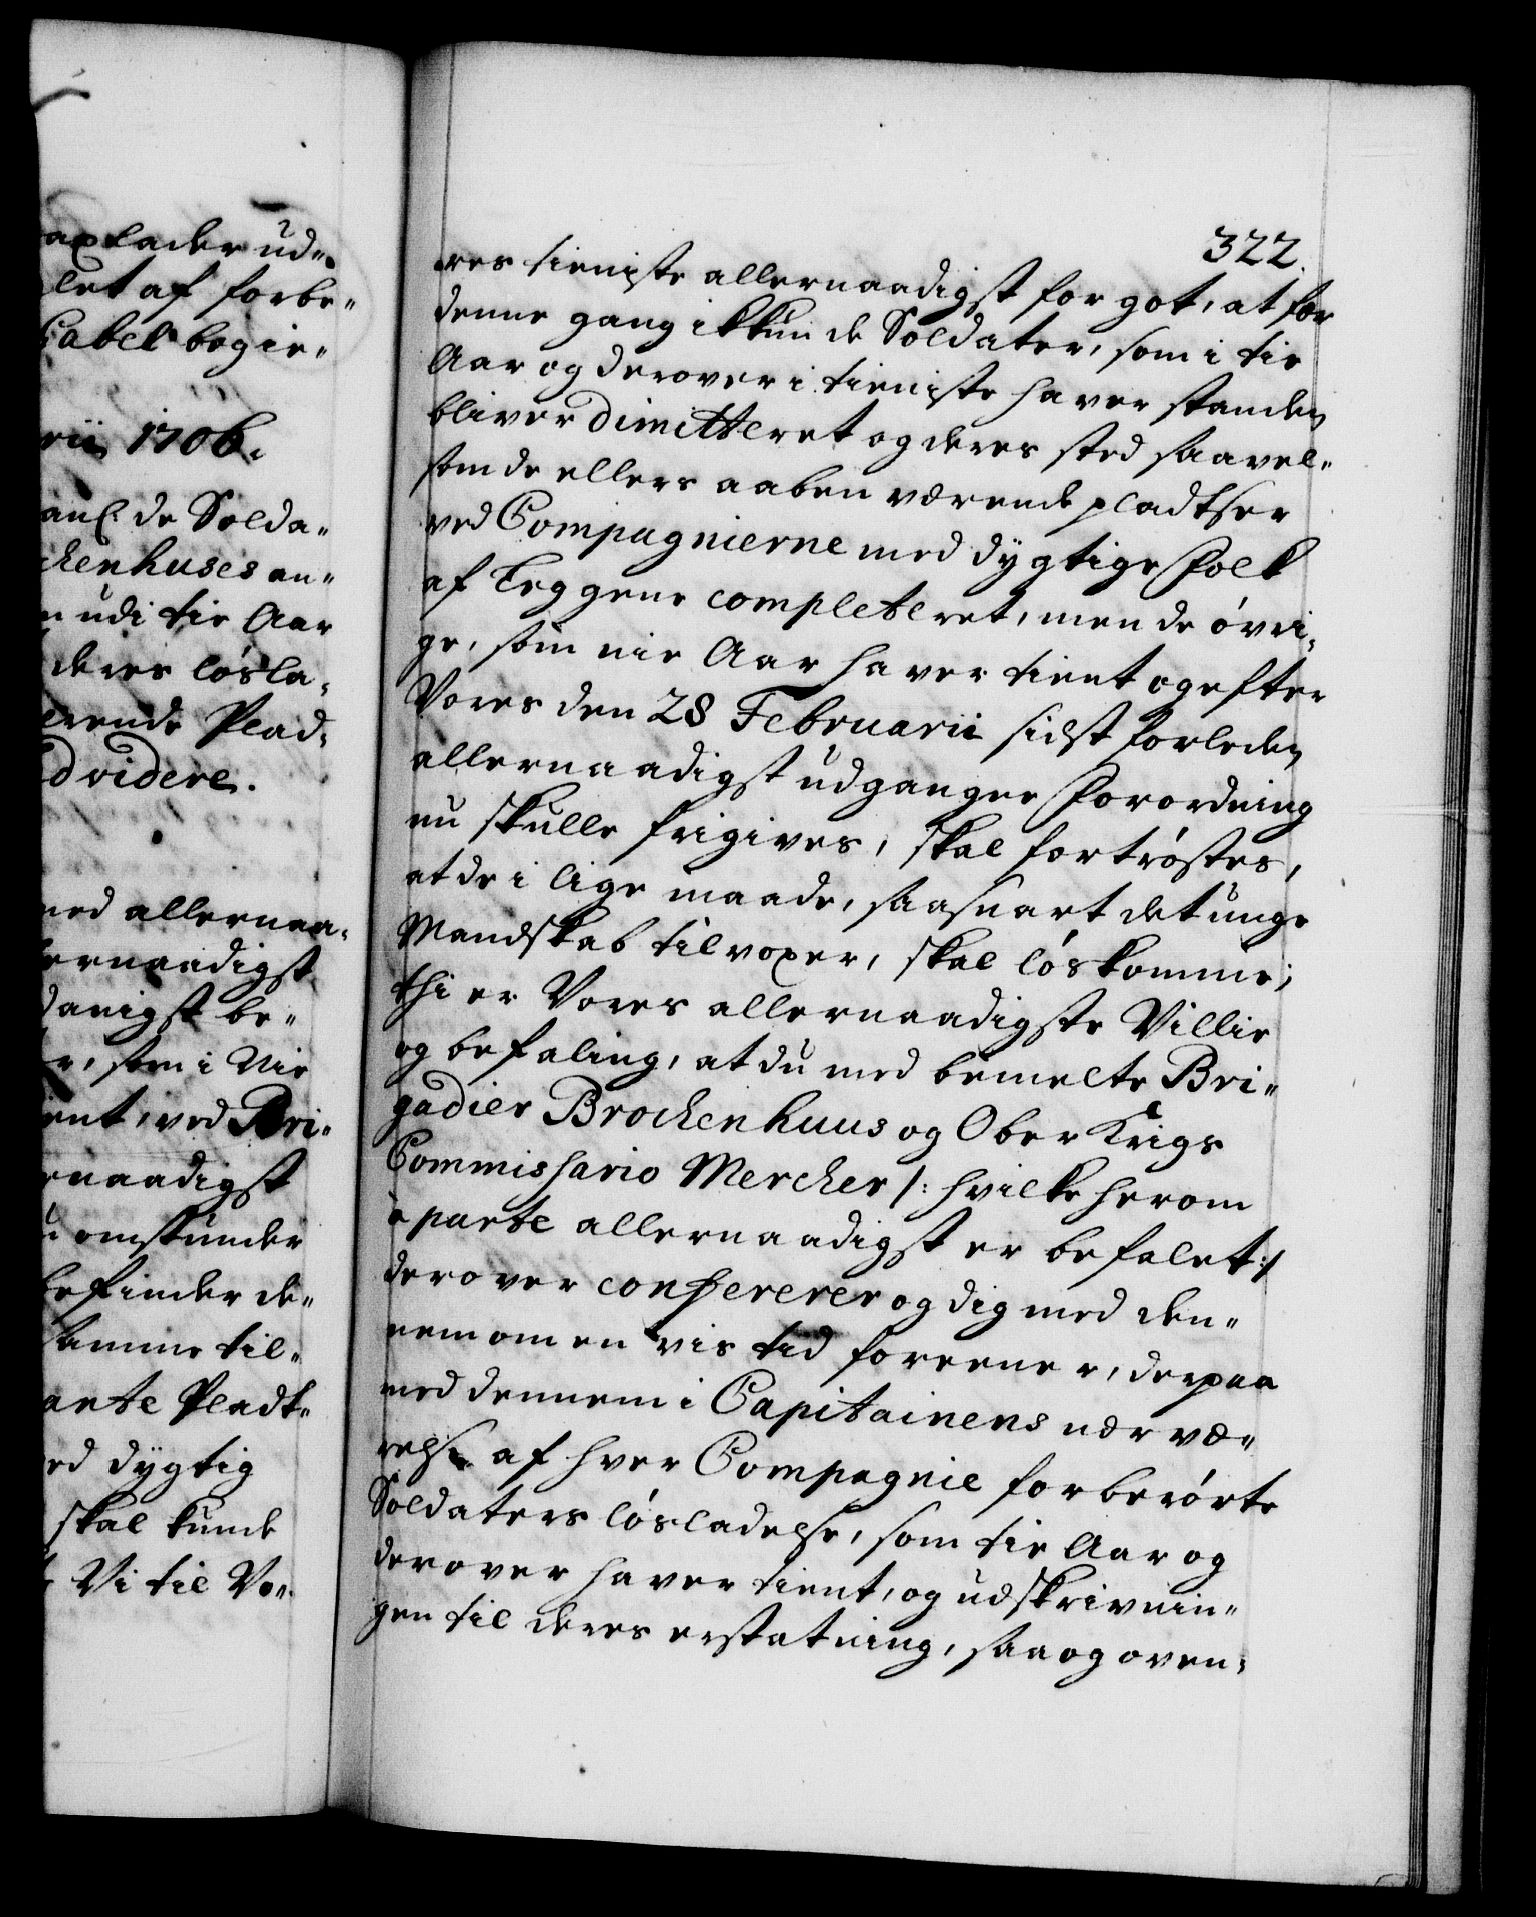 axlader ud„
let af forbe„
Cabel begie„
rii 1706.
anl: de Solda„
ckenhuses an„
n udi tie Aar
deres løsla„
erende Plad„
d videre.
ned allernaa„
ernaadigst
danigst be„
r, som i Nie
ient, ved Bri„
rnaadigst
omstunder
befinder de„
samme til„
ante Pladt„
ed dygtig
skal kunde
Vi til Vo„
322.
res tieniste allernaadigst for got, at for
denne gang ikkun de Soldater, som i tie
Aar og derover i tieniste haver standen
bliver dimitteret og deres sted saavel„
som de ellers aaben værende pladtser
ved Compagnierne med dygtige Folk
af Leggene completeret, men de øvri„
ge, som nie Aar haver tient og efter
Vores den 28 Februarii sidst forleden
allernaadigst udgangne Forordning
nu skulle frigives, skal fortrøstes,
at de i lige maade, saasnart det unge
Mandskab tilvoxer, skal løskomme;
thi er Vores allernaadigste Villie
og befaling, at du med bemelte Bri„
gadier Brockenhuus og Ober Krigs
Commissario Mercker /: hvilke herom
à parte allernaadigst er befalet :/
derover confererer og dig med den„
nem om en vis tid foreener, derpaa
med dennem i Capitainens nærvæ„
relse af hver Compagnie forberørte
Soldaters løsladelse, som tie Aar og
derover haver tient, og udskrivnin„
gen til deres erstatning, saa og oven„